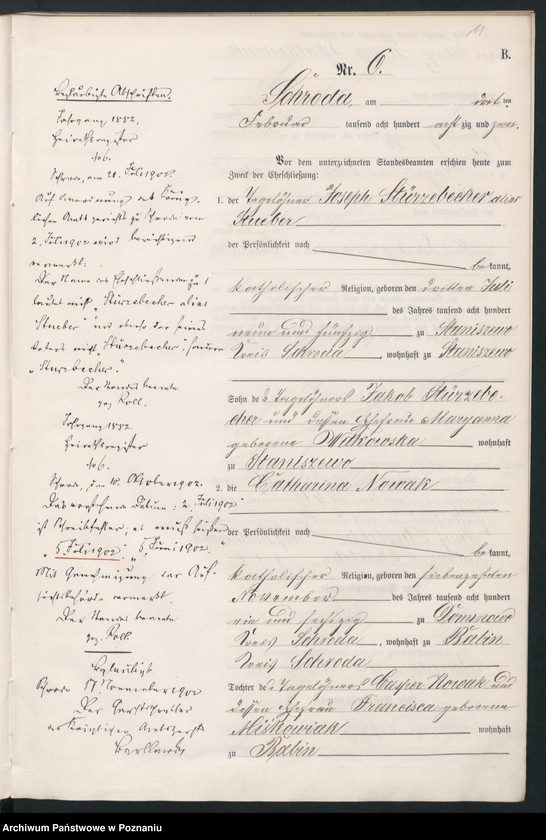 11
B.
Nr. 6.
Schroda, am dritten
Februar tausend acht hundert achtzig und zwei.
Vor dem unterzeichneten Standesbeamten erschien heute zum
Zweck der Eheschließung:
1. der Tagelöhner Joseph Stürzebecher alias
Stueber
der Persönlichkeit nach
bekannt,
katholischer Religion, geboren den dritten Juli
des Jahres tausend acht hundert
neun und fünfzig zu Staniszewo
Kreis Schroda, wohnhaft zu Staniszewo
Sohn des Tagelöhners Jakob Stürzebe-
cher und dessen Ehefrau Maryanna
geborene Witkowska wohnhaft
zu Staniszewo
2. die Catharina Nowak
der Persönlichkeit nach
bekannt,
katholischer Religion, geboren den siebenzehnten
November des Jahres tausend acht hundert
ein und sechszig zu
Kreis Schroda, wohnhaft zu Babin
Kreis Schroda
Tochter des Tagelöhners Casper Nowak und
dessen Ehefrau Francisca geborene
Miśkowiak wohnhaft
zu Babin
Beglaubigte Abschriften.
Jahrgang 1882.
Heiratsregister
No 6.
Schroda, am 21. Juli 1902.
Auf Anordnung des König-
lichen Amtsgerichts zu Schroda vom
2. Juli 1902 wird berichtigend
vermerkt:
Der Name des Eheschließenden zu 1
lautet nicht "Stürzebecher alias
Stueber" und ebenso der seines
Vaters nicht "Stürzebecher" sondern
"Sturzbecher".
Der Standesbeamte
gez. Koll.
Jahrgang 1882.
Heiratsregister
No 6.
Schroda, am 10. Oktober 1902.
Das vorstehende Datum: "2. Juli 1902"
ist Schreibfehler, es muß heißen
"5. Juli 1902" "5. Juni 1902."
Mit Genehmigung der Auf-
sichtsbehörde vermerkt.
Der Standesbeamte
gez. Koll.
Beglaubigt
Schroda 17 November 1902
Der Gerichtsschreiber
des Königlichen Amtsgerichts
Archiwum Państwowe w Poznaniu